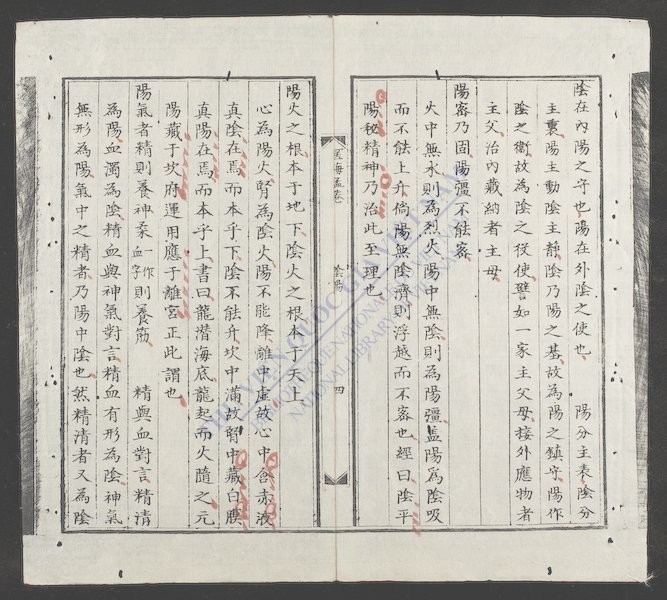 陰在內陽之守也陽在外陰之使也　陽分主表陰分
主裏陽主動陰主靜陰乃陽之基故為陽之鎮守陽作
陰之衛故為陰之役使譬如一家主父母接外應物者
主父治內藏納者主母
陽密乃固陽彊不能密
火中無水則為烈火陽中無陰則為陽彊盖陽為陰吸
而不能上升倘陽無陰濟則浮越而不密也經曰陰平
陽秘精神乃治此至理也
陰陽
四
陽火之根本于地下陰火之根本于天上
心為陽火腎為陰火陽不能降離中虛故心中含赤液
真陰在焉而本乎下陰不能升坎中滿故腎中藏白膜
真陽在焉而本乎上書曰龍潛海底龍起而火隨之元
陽藏于坎府運用應于離宮正此謂也
陽氣者精則養神柔一作血字則養筋　精與血對言精清
為陽血濁為陰精血與神氣對言精血有形為陰神氣
無形為陽氣中之精者乃陽中陰也然精清者又為陰
THƯ VIỆN QUỐC GIA VIỆT NAM
NATIONAL LIBRARY OF VIETNAM